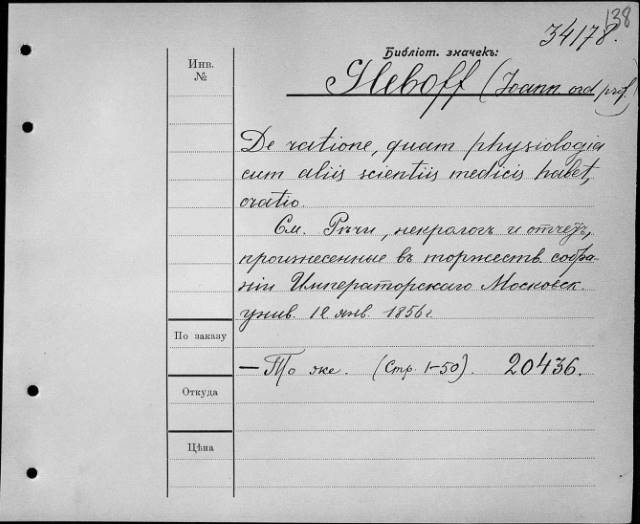 138
34178.
Библіот. значекъ:
Инв.
№
Gleboff (Joann ord prof.)
De ratione, quam physiologia
cum aliis scientiis medicis habet,
oratio.
См. Рѣчи, некрологъ и отчетъ,
произнесенные въ торжеств. собра-
ніи Императорскаго Московск.
унив. 12 янв. 1856 г
По заказу
— То же. (Стр. 1-50). 20436.
Откуда
Цѣна